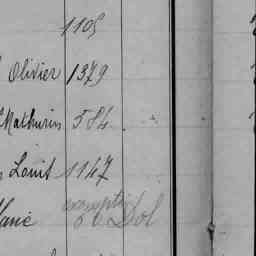 1105
Olivier 1329
Mathurin 584
Louis 1147
exempté
Dol